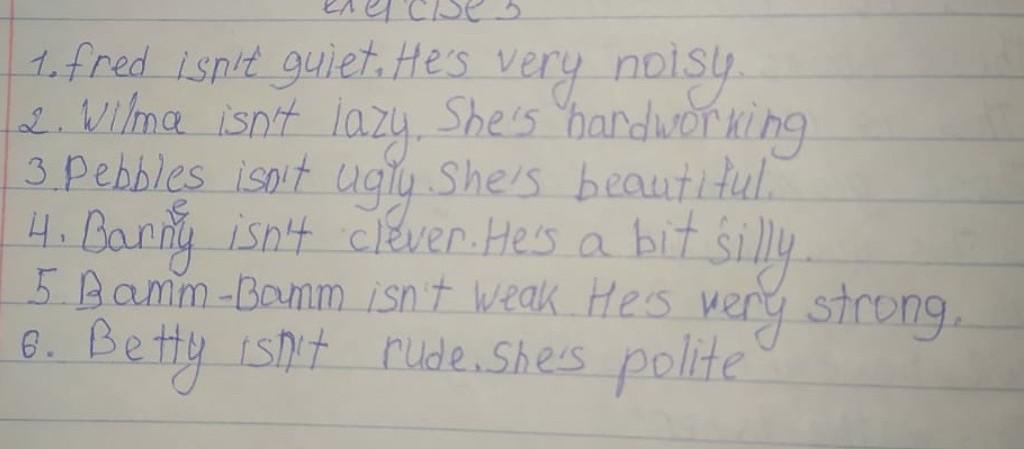 exercise 3
1. fred isn't quiet. He's very noisy.
2. Wilma isn't lazy. She's hardworking
3. Pebbles isn't ugly. She's beautiful.
4. Barney isn't clever. He's a bit silly.
5. Bamm-Bamm isn't weak He's very strong.
6. Betty isn't rude. She's polite